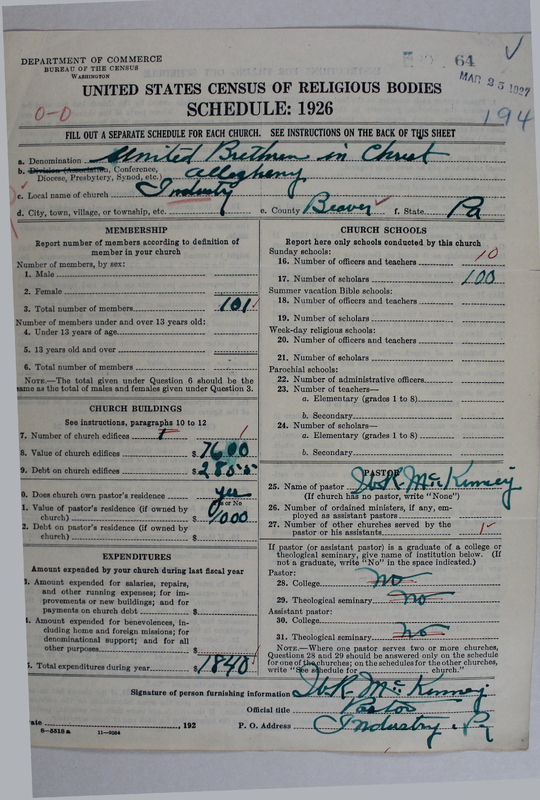 DEPARTMENT OF COMMERCE
BUREAU OF THE CENSUS
WASHINGTON
64
MAR 25 1927
194
UNITED STATES CENSUS OF RELIGIOUS BODIES
0-0
SCHEDULE: 1926
FILL OUT A SEPARATE SCHEDULE FOR EACH CHURCH. SEE INSTRUCTIONS ON THE BACK OF THIS SHEET
a. Denomination United Brethren in Christ
b. Division (Association, Conference, Diocese, Presbytery, Synod, etc.) Allegheny
c. Local name of church Industry
d. City, town, village, or township, etc. e. County Beaver f. State Pa
MEMBERSHIP
Report number of members according to definition of
member in your church
Number of members, by sex:
1. Male
2. Female
3. Total number of members 101
Number of members under and over 13 years old:
4. Under 13 years of age
5. 13 years old and over
6. Total number of members
NOTE.—The total given under Question 6 should be the
same as the total of males and females given under Question 3.
CHURCH BUILDINGS
See instructions, paragraphs 10 to 12
7. Number of church edifices 1
8. Value of church edifices $ 7600
9. Debt on church edifices $ 2855
0. Does church own pastor's residence yes
Yes or No
1. Value of pastor's residence (if owned by
church) $ 1000
2. Debt on pastor's residence (if owned by
church) $
EXPENDITURES
Amount expended by your church during last fiscal year
Amount expended for salaries, repairs,
and other running expenses; for im-
provements or new buildings; and for
payments on church debt $
Amount expended for benevolences, in-
cluding home and foreign missions; for
denominational support; and for all
other purposes $
Total expenditures during year $ 1840
CHURCH SCHOOLS
Report here only schools conducted by this church
Sunday schools:
16. Number of officers and teachers 10
17. Number of scholars 100
Summer vacation Bible schools:
18. Number of officers and teachers
19. Number of scholars
Week-day religious schools:
20. Number of officers and teachers
21. Number of scholars
Parochial schools:
22. Number of administrative officers
23. Number of teachers—
a. Elementary (grades 1 to 8)
b. Secondary
24. Number of scholars—
a. Elementary (grades 1 to 8)
b. Secondary
PASTOR
25. Name of pastor McKinney
(If church has no pastor, write "None")
26. Number of ordained ministers, if any, em-
ployed as assistant pastors
27. Number of other churches served by the
pastor or his assistants 1
If pastor (or assistant pastor) is a graduate of a college or
theological seminary, give name of institution below. (If
not a graduate, write "No" in the space indicated.)
Pastor:
28. College no
29. Theological seminary no
Assistant pastor:
30. College
31. Theological seminary no
NOTE.—Where one pastor serves two or more churches,
Questions 28 and 29 should be answered only on the schedule
for one of the churches; on the schedules for the other churches,
write "See schedule for church."
Signature of person furnishing information McKinney
Official title Pastor
Date , 192 P. O. Address Industry, Pa
8-5518a 11-9054